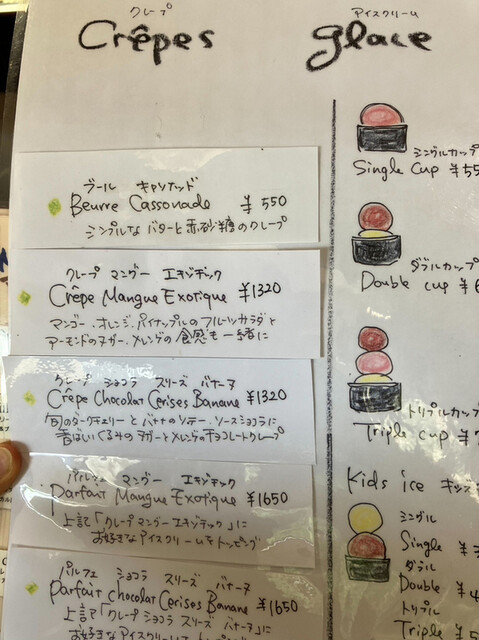 クレープ
Crêpes
ブール キャソナッド
Beurre Cassonade ¥550
シンプルなバターと赤砂糖のクレープ
クレープ マングー エキゾチック
Crêpe Mangue Exotique ¥1320
マンゴー、オレンジ、パイナップルのフルーツサラダと
アーモンドのヌガー、メレンゲの食感も一緒に
クレープ ショコラ スリーズ バナーヌ
Crêpe Chocolat Cerises Banane ¥1320
旬のダークチェリーとバナナのソテー、ソースショコラに
香ばしいくるみのヌガーとメレンゲのチョコレートクレープ
パルフェ マングー エキゾチック
Parfait Mangue Exotique ¥1650
上記「クレープマングーエキゾチック」に
お好きなアイスクリームをトッピング
パルフェ ショコラ スリーズ バナーヌ
Parfait Chocolat Cerises Banane ¥1650
上記「クレープ ショコラ スリーズ バナーヌ」に
お好きなアイスクリームをトッピング
アイスクリーム
glace
シングルカップ
Single Cup ¥55
ダブルカップ
Double cup ¥6
トリプルカップ
Triple cup ¥7
Kids ice キッズ
シングル
Single ¥3
ダブル
Double ¥4
トリプル
Triple ¥5